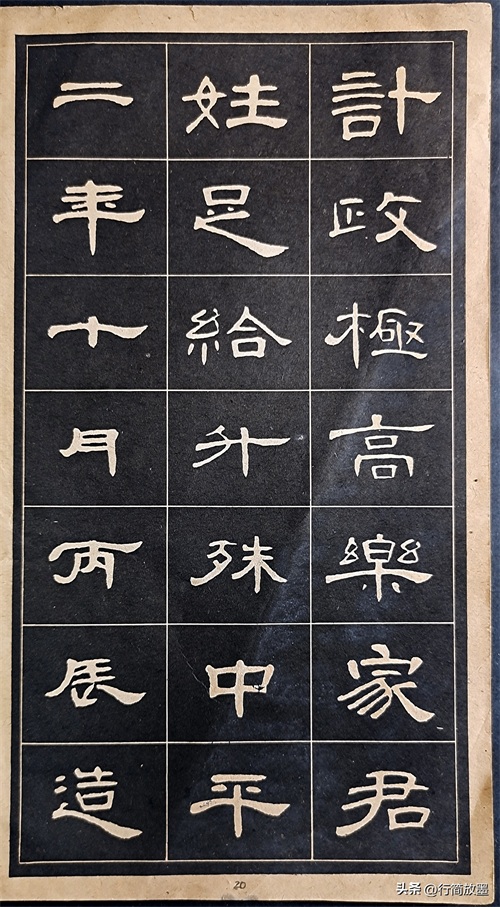 計政極高樂家君
姓足給升殊中平
二年十月丙辰造
20
头条 @行简放墨